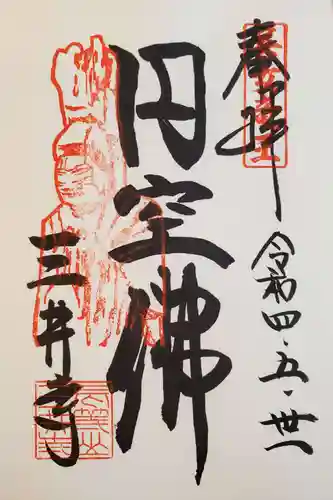 奉拝
令和四・五・卅一
円空佛
三井寺